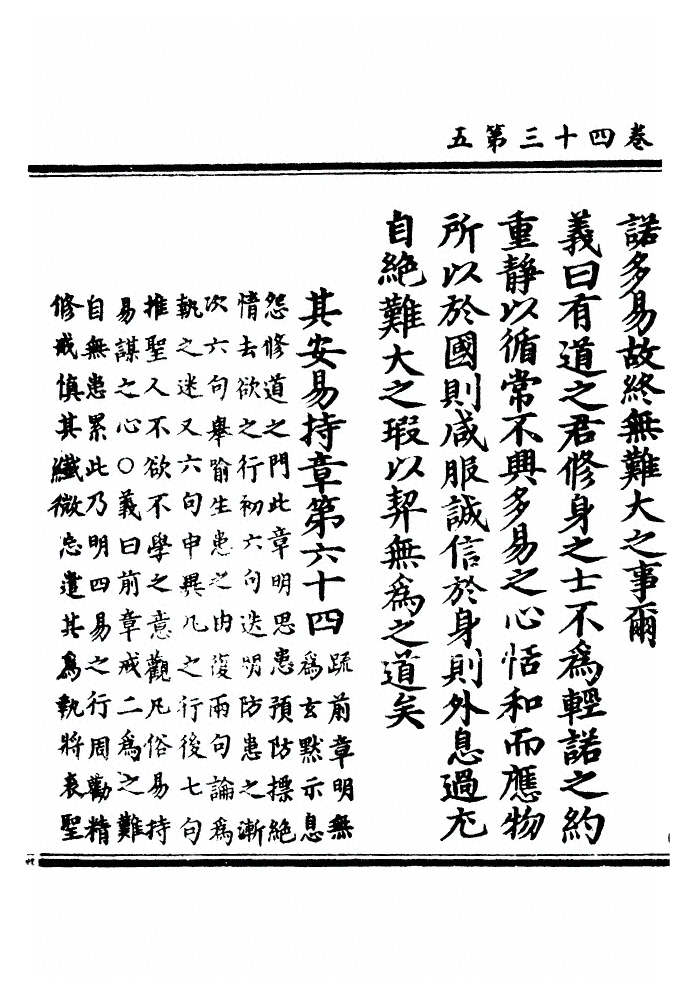 卷四十三第五
諾多易故終無難大之事爾
義曰有道之君修身之士不為輕諾之約
重靜以循常不興多易之心恬和而應物
所以於國則咸服誠信於身則外息過尤
自絶難大之瑕以契無為之道矣
其安易持章第六十四
疏前章明無
為玄默示息
怨修道之門此章明思患預防摽絶
情去欲之行初六句迭明防患之漸
次六句舉喻生患之由復兩句論為
執之迷又六句申異凡之行後七句
推聖人不欲不學之意觀凡俗易持
易謀之心○義曰前章戒二為之難
自無患累此乃明四易之行周勸精
修戒慎其纖微忘遣其為執將表聖